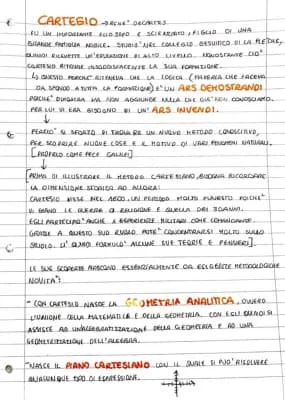 CARTESIO → RENE' DECARTES
FU UN IMPORTANTE FILOSOFO E SCIENZIATO, FIGLIO DI UNA
GRANDE FAMIGLIA NOBILE. STUDIO' NEL COLLEGIO GESUITICO DI LA FLECHE,
QUINDI RICEVETTE UN'EDUCAZIONE DI ALTO LIVELLO. NONOSTANTE CIO'
CARTESIO RITENNE INSODDISFACENTE LA SUA FORMAZIONE.
↳ QUESTO PERCHE' RITENEVA CHE LA LOGICA (MATERIA CHE FACEVA
DA SFONDO A TUTTA LA FORMAZIONE) E' UN ARS DEMOSTRANDI
PERCHE' DIMOSTRA MA NON AGGIUNGE NULLA CHE GIA' NON CONOSCIAMO.
PER LUI VI ERA BISOGNO DI UN' ARS INVENDI.
PERCIO' SI SFORZO DI TROVARE UN NUOVO METODO CONOSCITIVO,
PER SCOPRIRE NUOVE COSE E IL MOTIVO DI VARI FENOMENI NATURALI.
[PROPRIO COME FECE GALILEI]
PRIMA DI ILLUSTRARE IL METODO CARTESIANO, BISOGNA RICORDARE
LA DIMENSIONE STORICA AD ALLORA:
CARTESIO VISSE NEL 1600, UN PERIODO MOLTO FUNESTO POICHE'
VI ERANO LE GUERRE DI RELIGIONE E QUELLA DEI 30 ANNI.
EGLI PARTECIPO' ANCHE A ESPERIENZE MILITARI COME COMANDANTE.
GRAZIE A QUESTO SUO RUOLO, POTE' CONCENTRARSI MOLTO SULLO
STUDIO. [E' QUINDI FORMULO' ALCUNE SUE TEORIE E PENSIERI].
LE SUE SCOPERTE NASCONO ESSENZIALMENTE DA ESIGENZE METODOLOGICHE
NOVITA':
- CON CARTESIO NASCE LA GEOMETRIA ANALITICA, OVVERO
L'UNIONE DELLA MATEMATICA E DELLA GEOMETRIA. CON EGLI QUINDI SI
ASSISTE AD UN'ALGEBRATIZZAZIONE DELLA GEOMETRIA E AD UNA
GEOMETRIZZAZIONE DELL'ALGEBRA.
- NASCE IL PIANO CARTESIANO CON IL QUALE SI PUO' RISOLVERE
QUALUNQUE TIPO DI ESPRESSIONE.